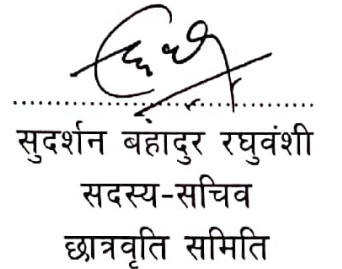 सुदर्शन बहादुर रघुवंशी
सदस्य-सचिव
छात्रवृति समिति